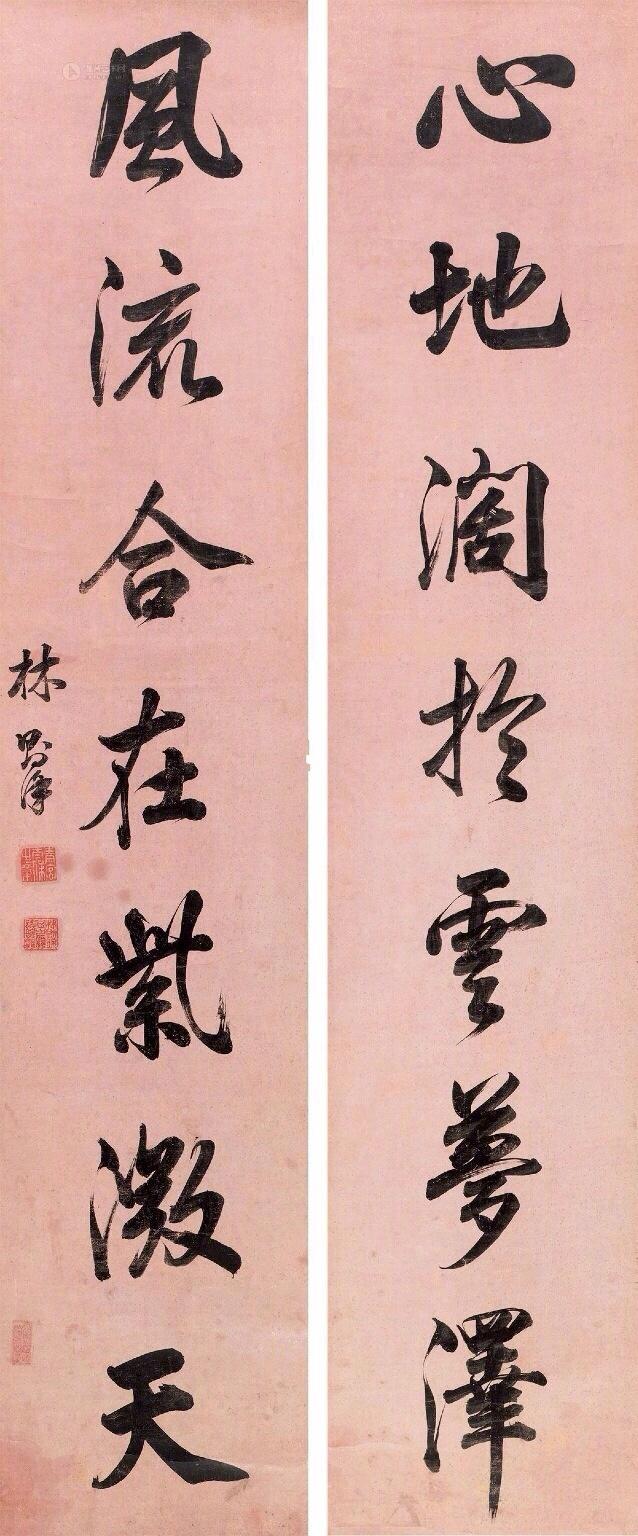 心地濶於雲夢澤
風流合在紫微天
林則徐